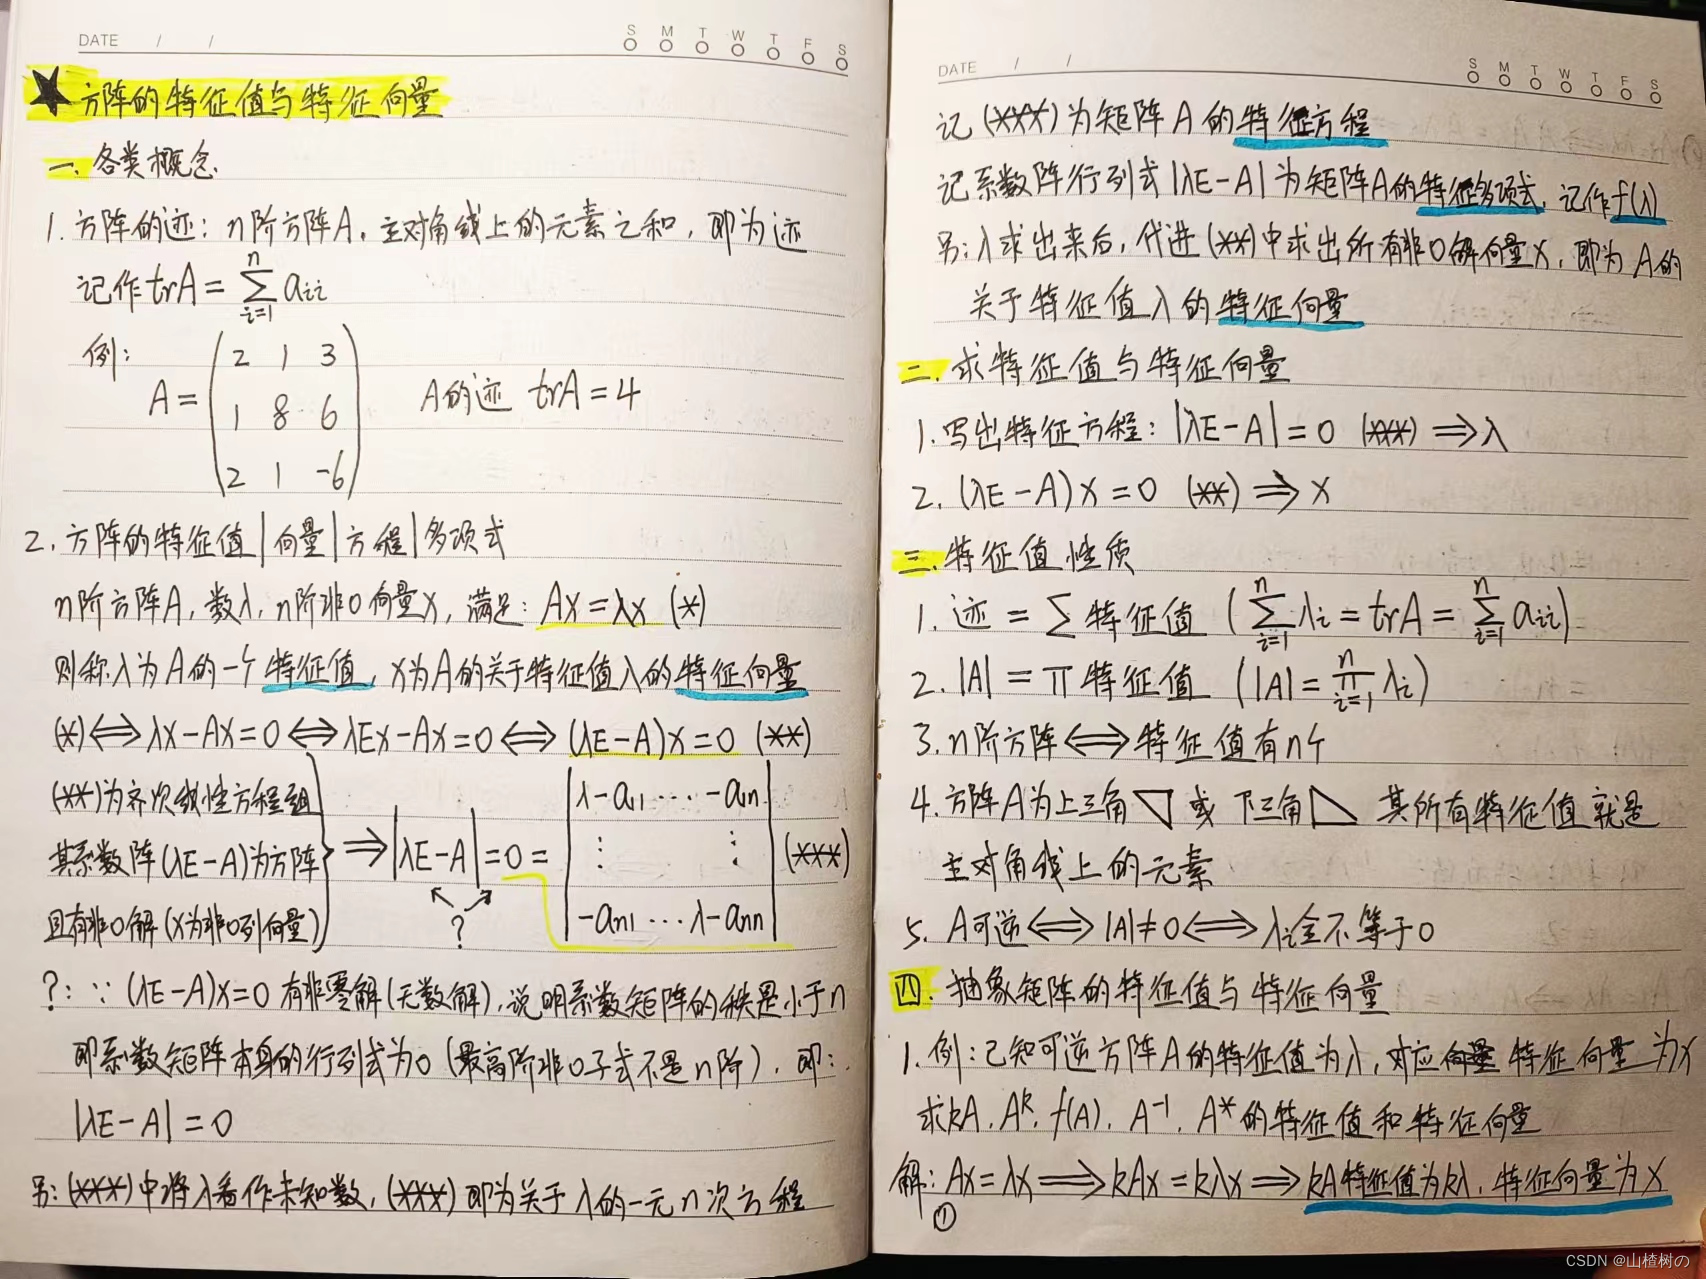 DATE / /
S M T W T F S
★ 方阵的特征值与特征向量
一. 各类概念.
1. 方阵的迹: n阶方阵A, 主对角线上的元素之和, 即为迹
记作 trA = ∑_{i=1}^{n} a_{ii}
例:
A = ( 2 1 3
1 8 6
2 1 -6 )
A的迹 trA = 4
2. 方阵的特征值|向量|方程|多项式
n阶方阵A, 数λ, n阶非0向量x, 满足: Ax=λx (*)
则称λ为A的一个特征值, x为A的关于特征值λ的特征向量
(*) ⟺ λx-Ax=0 ⟺ λEx-Ax=0 ⟺ (λE-A)x=0 (**)
(**)为齐次线性方程组
其系数阵(λE-A)为方阵
且有非0解(x为非0列向量)
⟹ |λE-A| = 0 =
| λ-a₁₁ ... -a₁n |
| ⋮ ⋮ |
| -an₁ ... λ-ann |
(***)
?
?: ∵ (λE-A)x=0 有非零解(无数解), 说明系数矩阵的秩是小于n
即系数矩阵本身的行列式为0 (最高阶非0子式不是n阶), 即:
|λE-A| = 0
另: (***)中将λ看作未知数, (***)即为关于λ的一元n次方程
DATE / /
S M T W T F S
记 (***) 为矩阵A的特征方程
记系数阵行列式|λE-A|为矩阵A的特征多项式, 记作f(λ)
另: λ求出来后, 代进(**)中求出所有非0解向量x, 即为A的
关于特征值λ的特征向量
二. 求特征值与特征向量
1. 写出特征方程: |λE-A|=0 (***) ⟹ λ
2. (λE-A)x=0 (**) ⟹ x
三. 特征值性质
1. 迹 = ∑特征值 (∑_{i=1}^{n} λi = trA = ∑_{i=1}^{n} a_{ii})
2. |A| = π特征值 (|A| = π_{i=1}^{n} λi)
3. n阶方阵 ⟺ 特征值有n个
4. 方阵A为上三角 或 下三角 其所有特征值就是
主对角线上的元素
5. A可逆 ⟺ |A|≠0 ⟺ λi全不等于0
四. 抽象矩阵的特征值与特征向量
1. 例: 已知可逆方阵A的特征值为λ, 对应向量特征向量为x
求kA, Aᵏ, f(A), A⁻¹, A*的特征值和特征向量
解: Ax=λx ⟹ kAx=kλx ⟹ kA特征值为kλ, 特征向量为x
①
CSDN @山楂树の